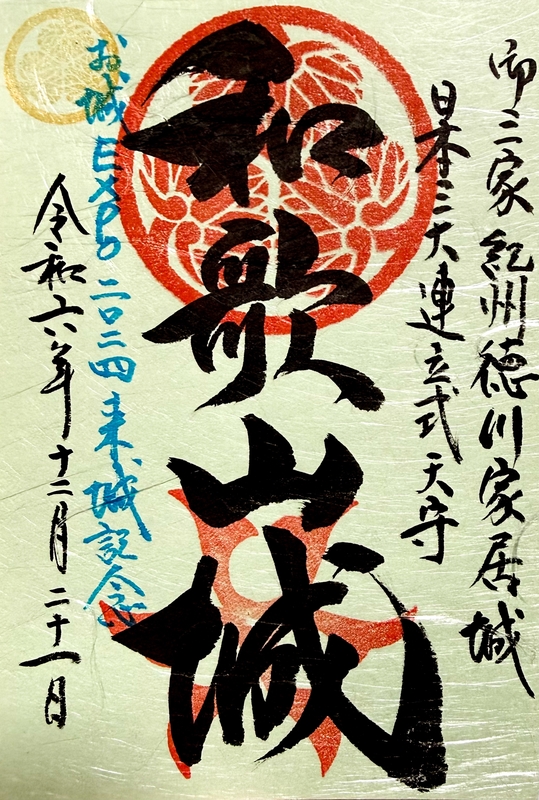 御三家 紀州徳川家居城
日本三大連立式天守
和歌山城
お城EXPO 二〇二四 来城記念
令和六年十二月二十一日